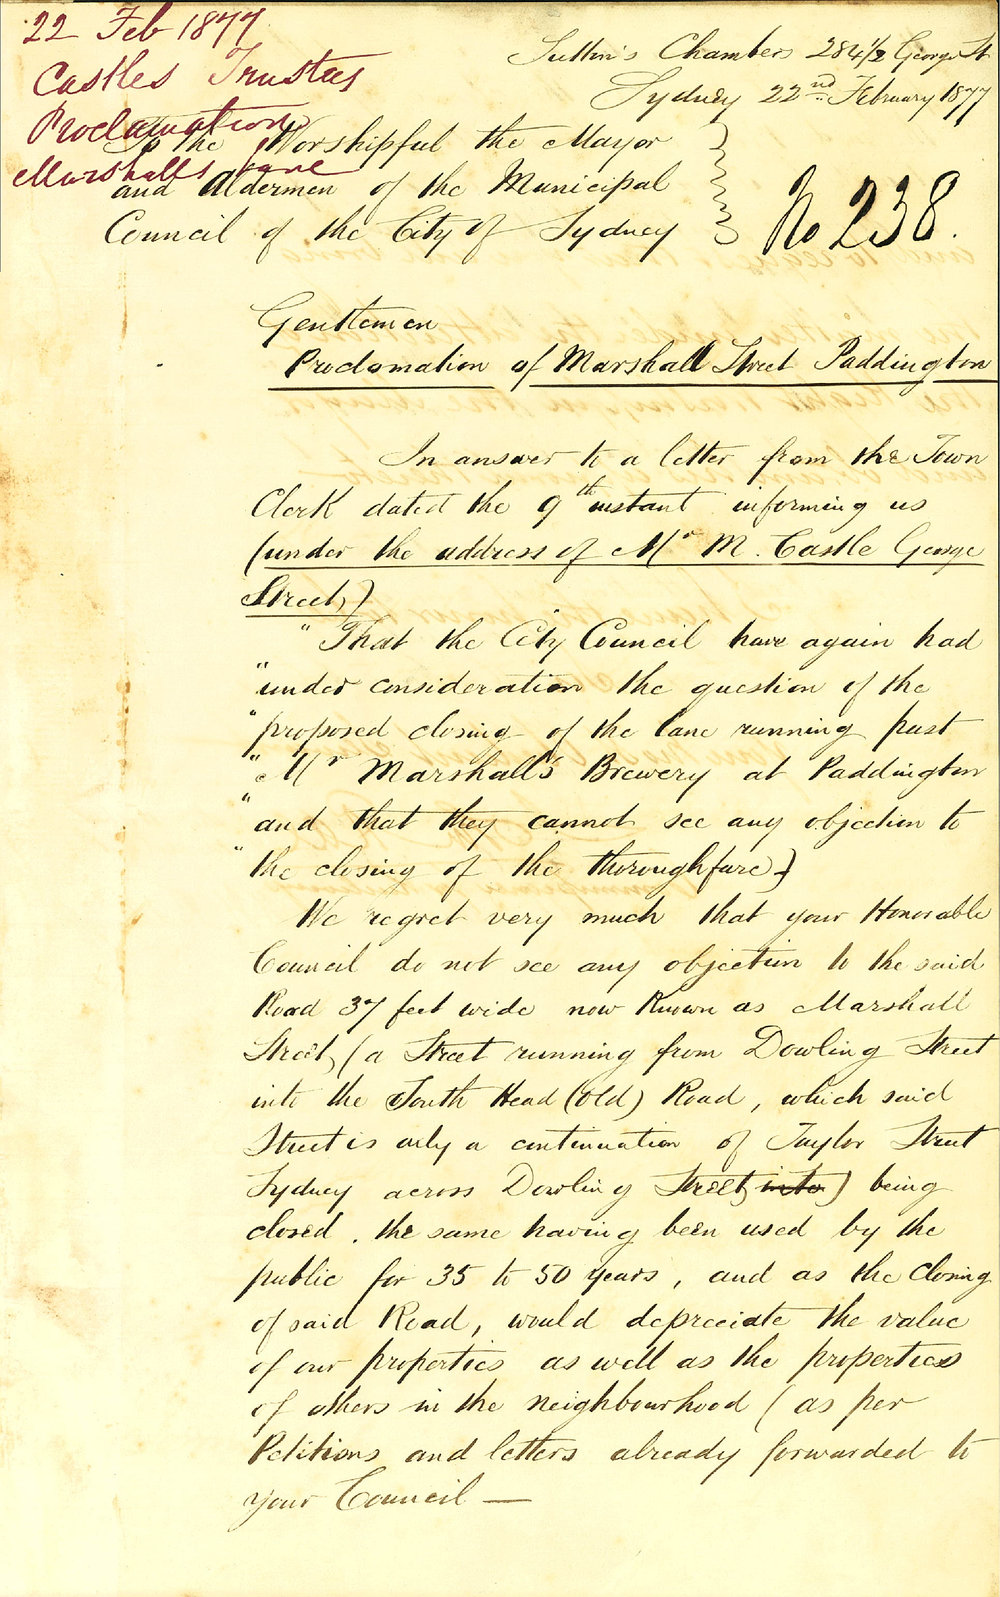 22 Feb 1877
Castles Trustees
Proclamation
Marshalls Lane
Suttin's Chambers 284½ George St
Sydney 22nd February 1877
To the Worshipful the Mayor
and Aldermen of the Municipal
Council of the City of Sydney
No 238.
Gentlemen
Proclamation of Marshall Street Paddington
In answer to a letter from the Town
Clerk dated the 9th instant informing us
(under the address of Mr M. Castle George
Street,)
"That the City Council have again had
"under consideration the question of the
"proposed closing of the lane running past
"Mr Marshall's Brewery at Paddington
"and that they cannot see any objection to
"the closing of the thoroughfare)
We regret very much that your Honorable
Council do not see any objection to the said
Road 37 feet wide now known as Marshall
Street, (a Street running from Dowling Street
into the South Head (Old) Road, which said
Street is only a continuation of Taylor Street
Sydney across Dowling Street, into) being
closed, the same having been used by the
public for 35 to 50 years, and as the Closing
of said Road, would depreciate the value
of our properties as well as the properties
of others in the neighbourhood (as per
Petitions and letters already forwarded to
your Council —